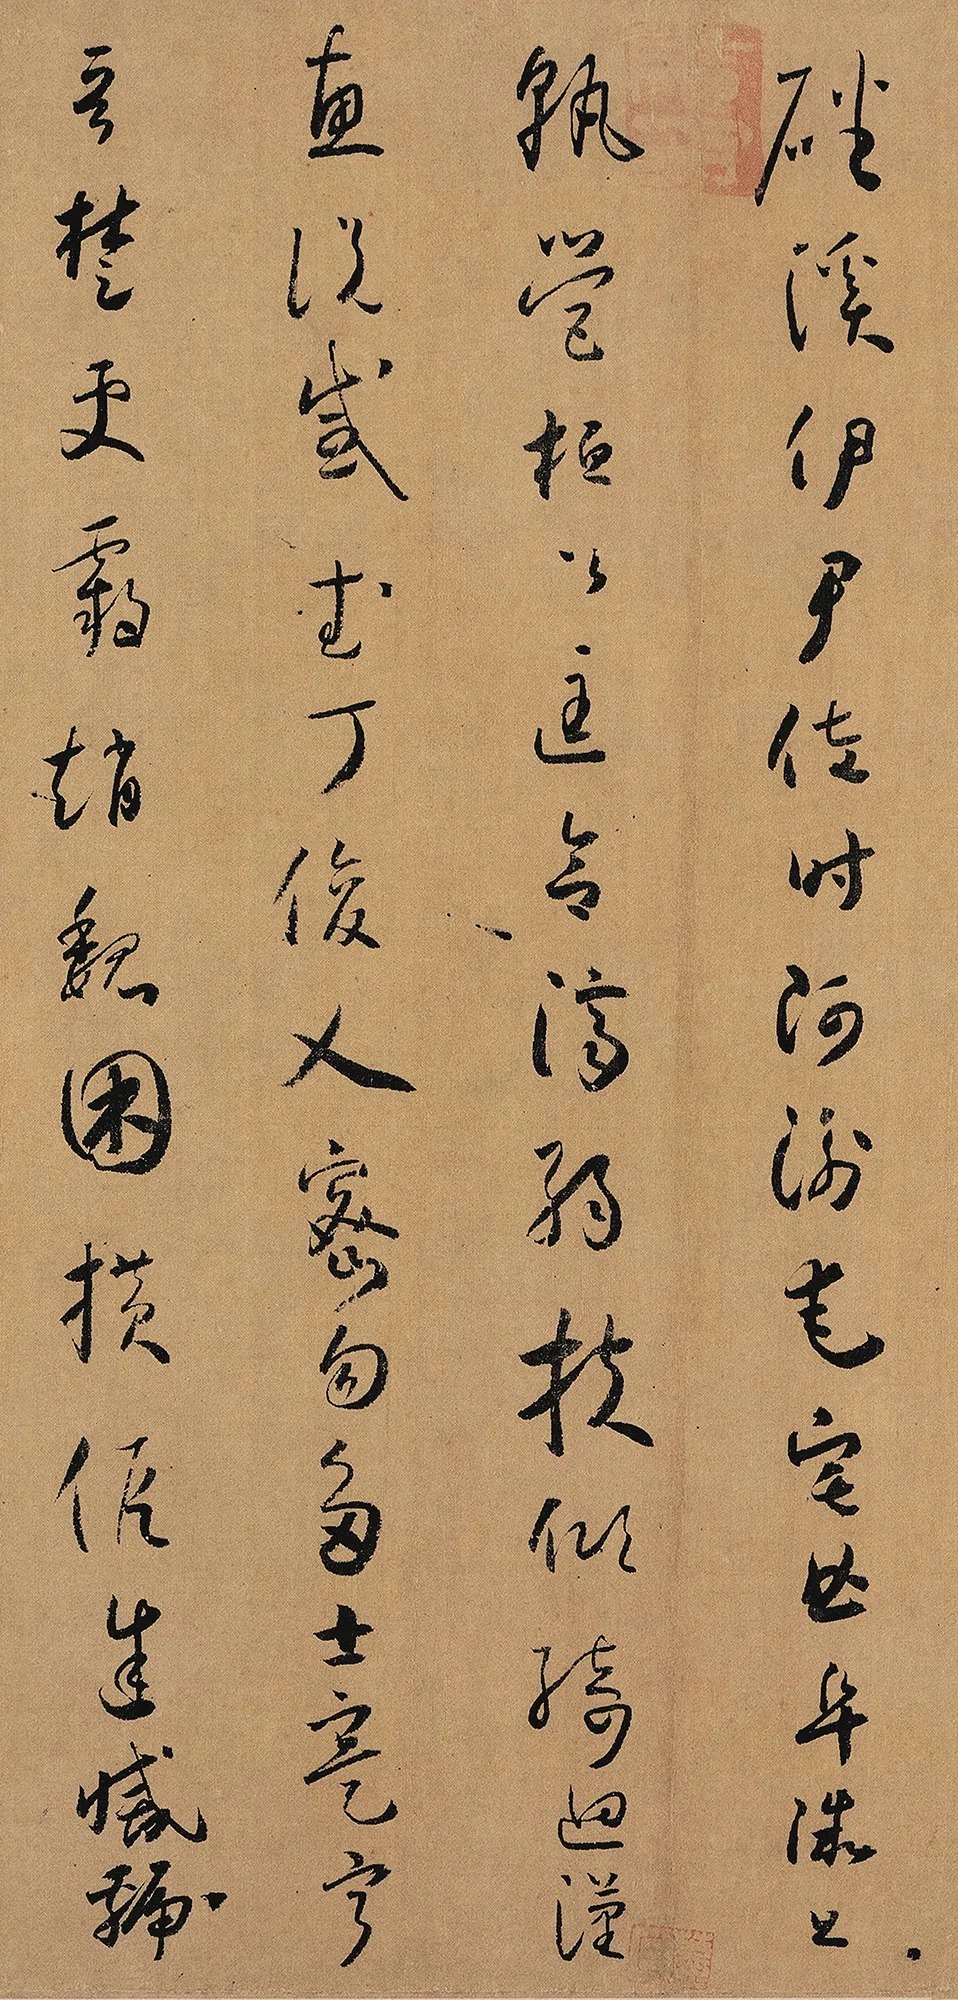 磻溪伊尹佐時阿衡奄宅曲阜微旦
孰營桓公匡合濟弱扶傾綺迴漢
惠說感武丁俊乂密勿多士寔寧
晉楚更霸趙魏困橫假途滅虢